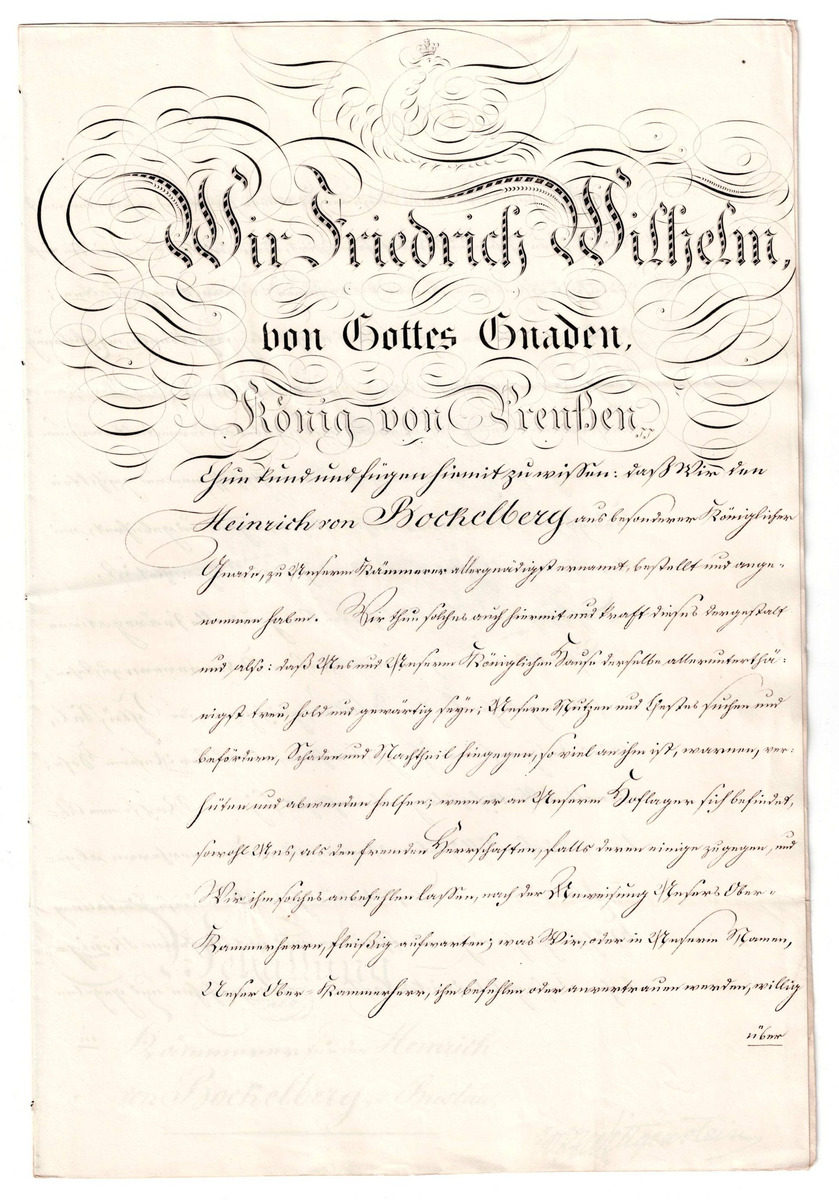 Wir Friedrich Wilhelm,
von Gottes Gnaden,
König von Preußen,
Thun kund und fügen hiermit zu wissen: daß Wir den
Heinrich von Bockelberg aus besonderer Königlicher
Gnade, zu Unserm Kämmerer allergnädigst ernannt, bestellt und ange-
nommen haben. Wir thun solches auch hiermit und kraft dieses dergestalt
und also: daß Uns und Unserm Königlichen Hause derselbe allerunterthä-
nigst treu, hold und gewärtig seyn; Unsern Nutzen und Bestes suchen und
befördern, Schaden und Nachtheil hingegen, so viel an ihm ist, warnen, ver-
hüten und abwenden helfen; wenn er an Unserm Hoflager sich befindet,
sowohl Uns, als den fremden Herrschaften, falls deren einige zugegen, und
Wir ihm solches anbefehlen lassen, nach der Anweisung Unsers Ober-
Kammerherrn, fleißig aufwarten; was Wir, oder in Unserm Namen,
Unser Ober-Kammerherr, ihm befehlen oder anvertrauen werden, willig
über